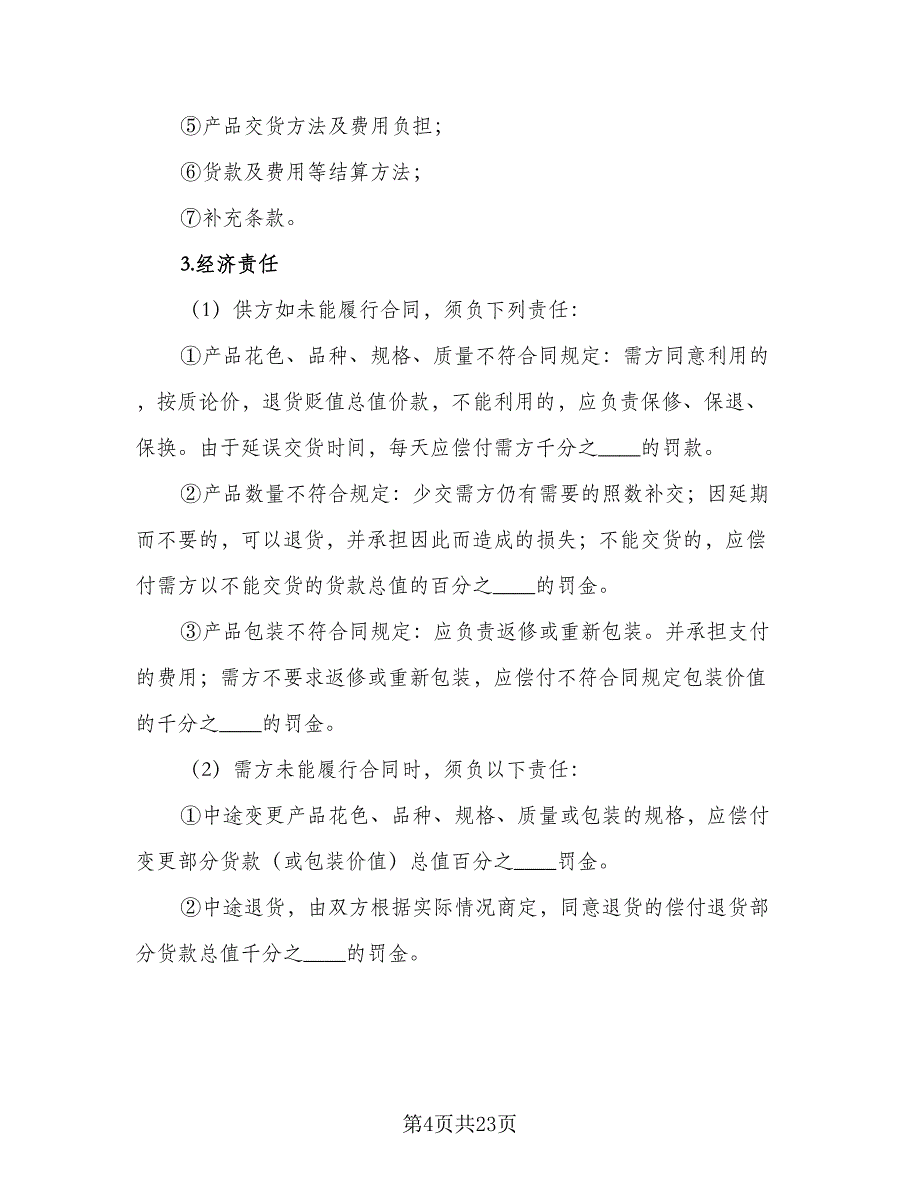 ⑤产品交货方法及费用负担；
⑥货款及费用等结算方法；
⑦补充条款。
3.经济责任
（1）供方如未能履行合同，须负下列责任：
①产品花色、品种、规格、质量不符合同规定：需方同意利用的
，按质论价，退货贬值总值价款，不能利用的，应负责保修、保退、
保换。由于延误交货时间，每天应偿付需方千分之____的罚款。
②产品数量不符合规定：少交需方仍有需要的照数补交；因延期
而不要的，可以退货，并承担因此而造成的损失；不能交货的，应偿
付需方以不能交货的货款总值的百分之____的罚金。
③产品包装不符合同规定：应负责返修或重新包装。并承担支付
的费用；需方不要求返修或重新包装，应偿付不符合同规定包装价值
的千分之____的罚金。
（2）需方未能履行合同时，须负以下责任：
①中途变更产品花色、品种、规格、质量或包装的规格，应偿付
变更部分货款（或包装价值）总值百分之____罚金。
②中途退货，由双方根据实际情况商定，同意退货的偿付退货部
分货款总值千分之____的罚金。
第4页共23页